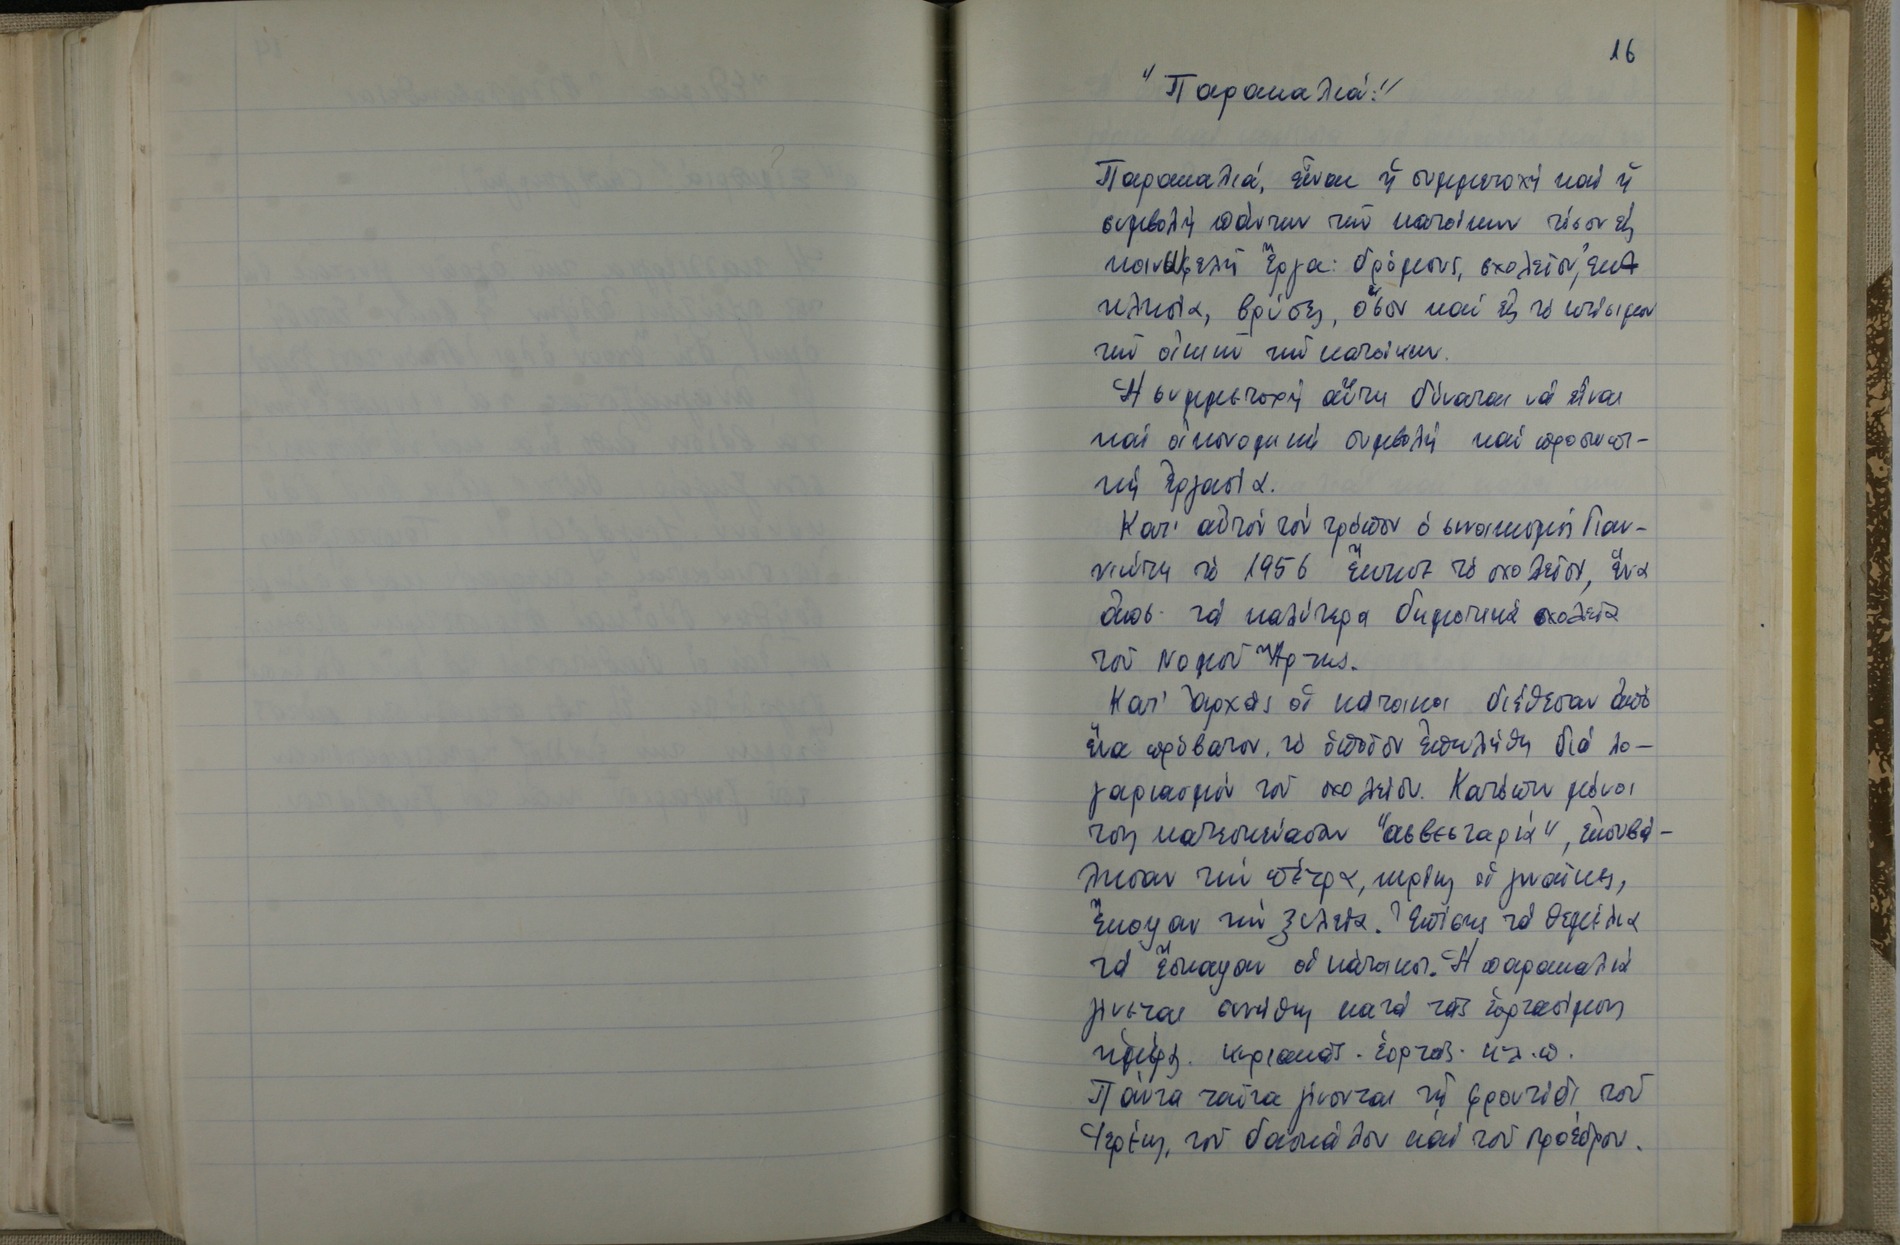 16
"Παρακαλιά:"
Παρακαλιά, εἶναι ἡ συμμετοχή καί ἡ
συμβολή πάντων τῶν κατοίκων τόσον εἰς
κοινωφελῆ ἔργα: δρόμους, σχολεῖον, ἐκ
κλησία, βρύσες, ὅσον καί εἰς τό κτίσιμον
τῶν οἰκιῶν τῶν κατοίκων.
Ἡ συμμετοχή αὕτη δύναται νά εἶναι
καί οἰκονομική συμβολή καί προσωπι-
κή ἐργασία.
Κατ' αὐτόν τόν τρόπον ὁ συνοικισμός Γιαν-
νιώτη τό 1956 ἔκτισε τό σχολεῖον, ἕνα
ἀπό τά καλύτερα δημοτικά σχολεῖα
τοῦ Νομοῦ Ἄρτης.
Κατ' ἀρχάς οἱ κάτοικοι διέθεσαν ἀπό
ἕνα πρόβατον, τό ὁποῖον ἐπωλήθη διά λο-
γαριασμόν τοῦ σχολείου. Κατόπιν μόνοι
των κατεσκεύασαν "ασβεσταριά", ἐκουβά-
λησαν τήν πέτρα, κυρίως οἱ γυναῖκες,
ἔκοψαν τήν ξυλεία. Ἐπίσης τά θεμέλια
τά ἔσκαψαν οἱ κάτοικοι. Ἡ παρακαλιά
γίνεται συνήθως κατά τάς ἑορτασίμους
ἡμέρας. Κυριακάς. ἑορτάς. κ.λ.π.
Πάντα ταῦτα γίνονται τῇ φροντίδι τοῦ
Ἱερέως, τοῦ δασκάλου καί τοῦ προέδρου.